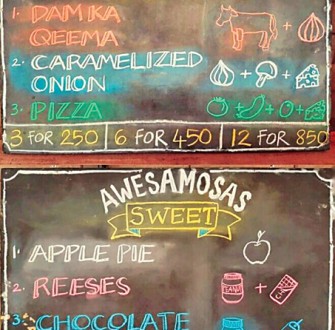 1. DAM KA
QEEMA
2. CARAMELIZED
ONION
3. PIZZA
3 FOR 250 | 6 FOR 450 | 12 FOR 850
AWESAMOSAS
SWEET
1. APPLE PIE
2. REESES
3. CHOCOLATE